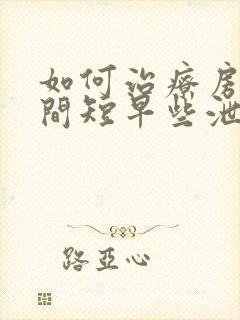 如何治療房
間短早些泄
路亞心